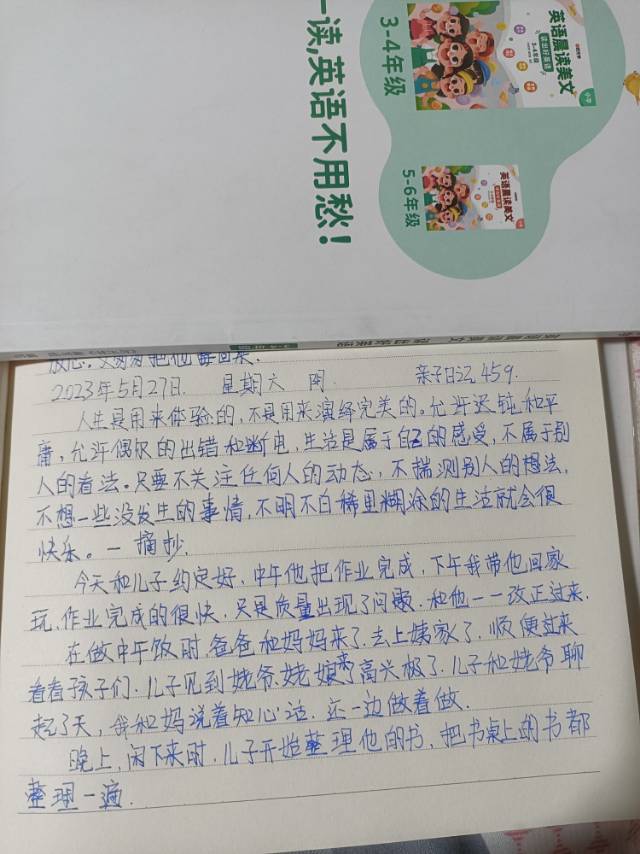 英语晨读美文
3-4年级
小学
一读,英语不用愁!
3-4年级
英语晨读美文
5-6年级
放心。
把他
回来.
2023年5月27日. 星期六 阴. 亲子日记459.
人生是用来体验的,不是用来演绎完美的。允许迟钝和平
庸,允许偶尔的出错和断电,生活是属于自己的感受,不属于别
人的看法。只要不关注任何人的动态,不揣测别人的想法,
不想一些没发生的事情,不明不白稀里糊涂的生活就会很
快乐。一摘抄.
今天和儿子约定好,中午他把作业完成,下午我带他回家
玩,作业完成的很快,只是质量出现了问题.和他一一改正过来.
在做中午饭时,爸爸和妈妈来了.去上姨家了.顺便过来
看看孩子们.儿子见到姥爷.姥娘来了高兴极了.儿子和姥爷聊
起了天,我和妈说着知心话.还一边做着做.
晚上,闲下来时,儿子开始整理他的书,把书桌上的书都
整理一遍.